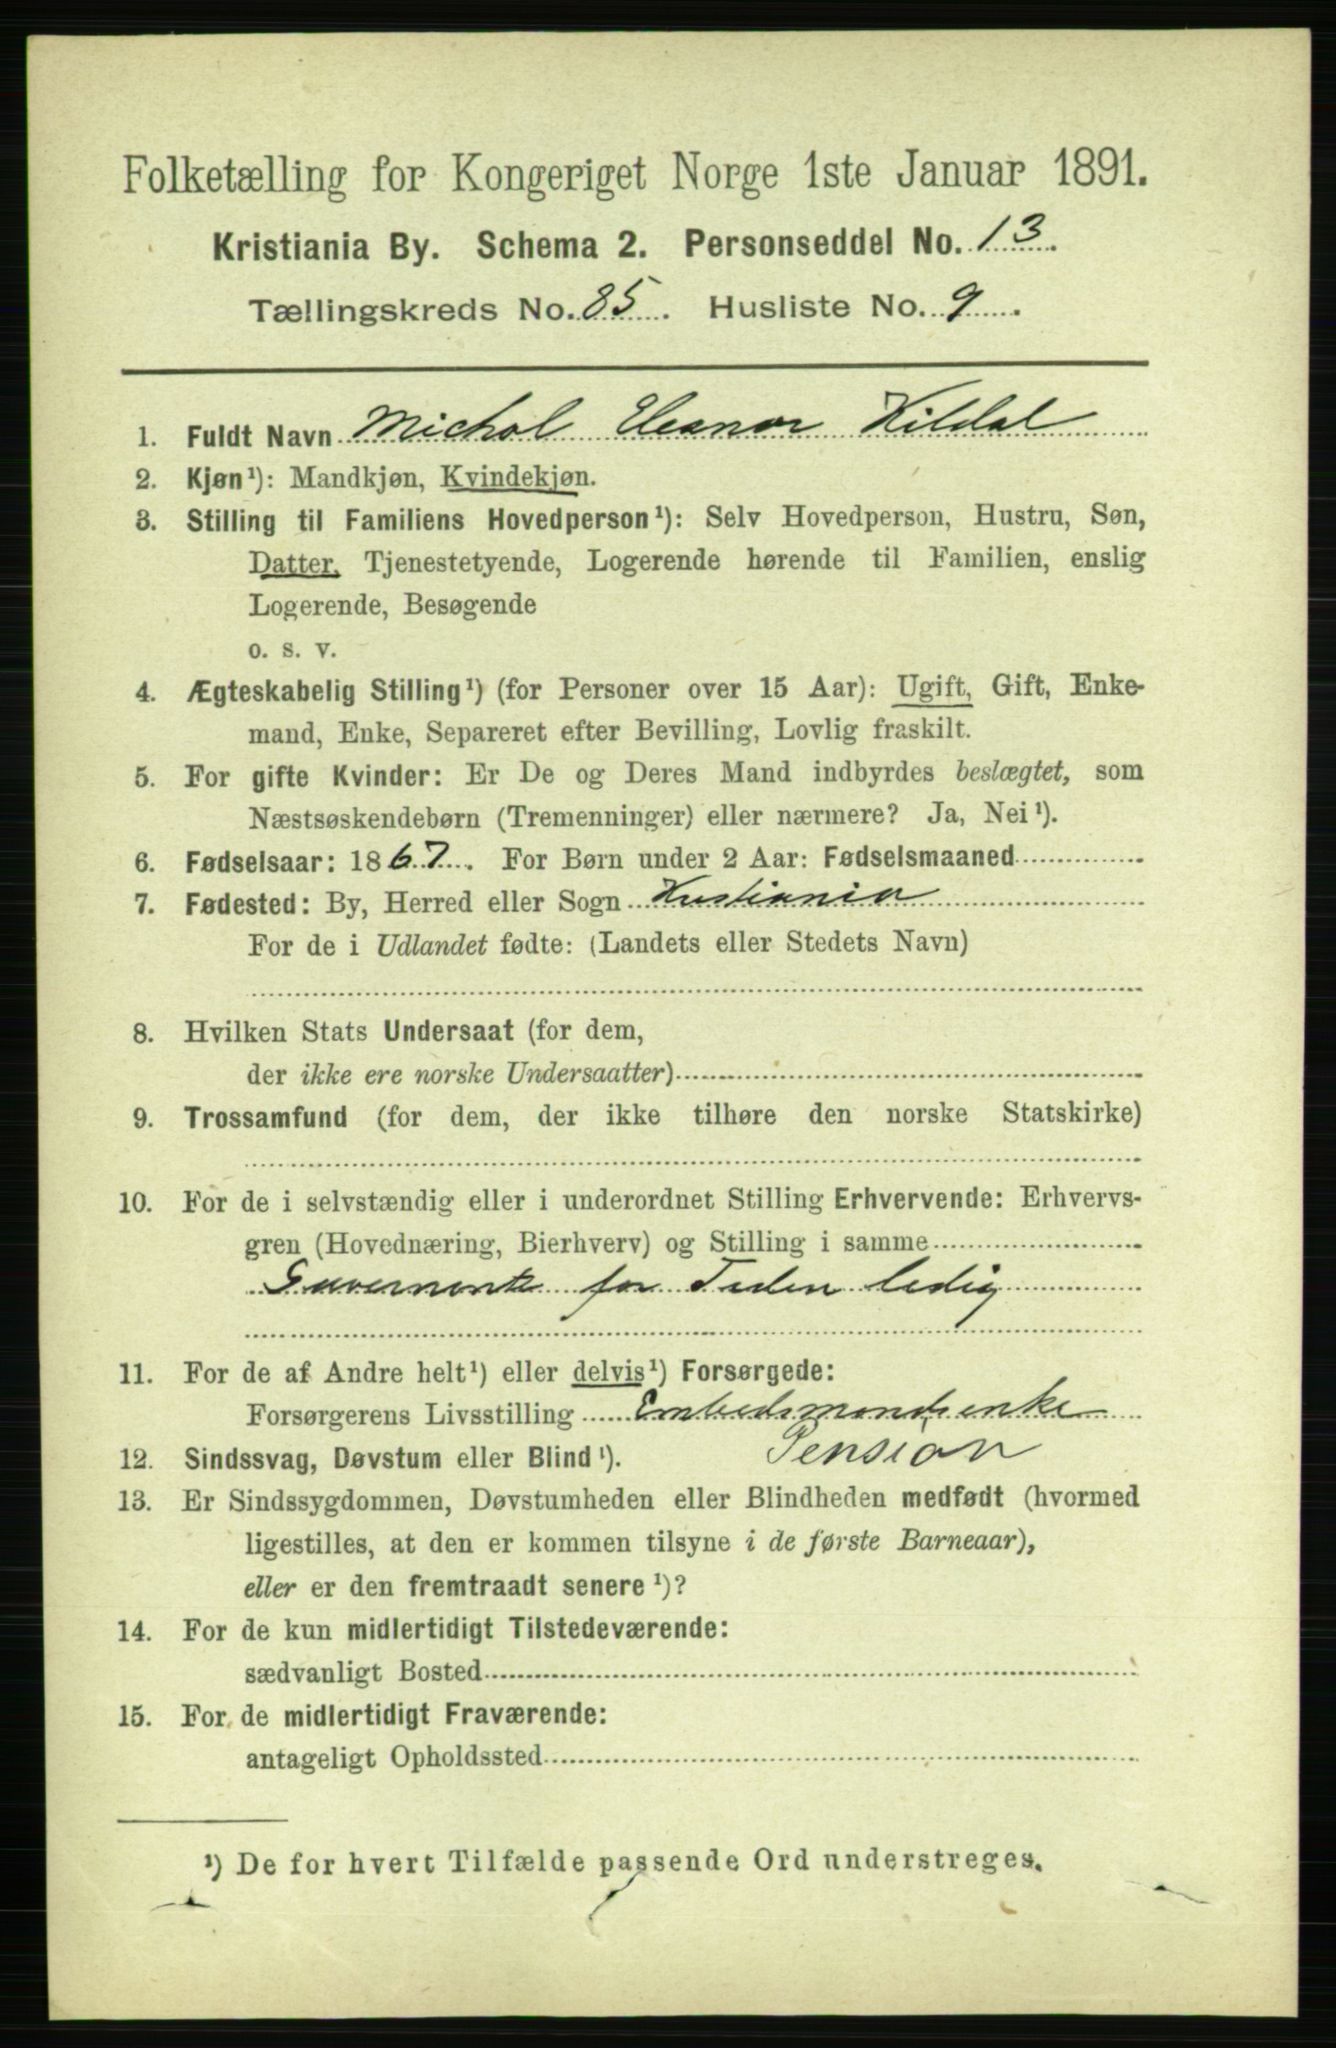 Folketælling for Kongeriget Norge 1ste Januar 1891.
Kristiania By. Schema 2. Personseddel No. 13.
Tællingskreds No. 85. Husliste No. 9.
1. Fuldt Navn Michal Eleanor Kildal
2. Kjøn¹): Mandkjøn, Kvindekjøn.
3. Stilling til Familiens Hovedperson¹): Selv Hovedperson, Hustru, Søn,
Datter, Tjenestetyende, Logerende hørende til Familien, enslig
Logerende, Besøgende
o. s. v.
4. Ægteskabelig Stilling¹) (for Personer over 15 Aar): Ugift, Gift, Enke-
mand, Enke, Separeret efter Bevilling, Lovlig fraskilt.
5. For gifte Kvinder: Er De og Deres Mand indbyrdes beslægtet, som
Næstsøskendebørn (Tremenninger) eller nærmere? Ja, Nei¹).
6. Fødselsaar: 1867. For Børn under 2 Aar: Fødselsmaaned
7. Fødested: By, Herred eller Sogn Kristiania
For de i Udlandet fødte: (Landets eller Stedets Navn)
8. Hvilken Stats Undersaat (for dem,
der ikke ere norske Undersaatter)
9. Trossamfund (for dem, der ikke tilhøre den norske Statskirke)
10. For de i selvstændig eller i underordnet Stilling Erhvervende: Erhvervs-
gren (Hovednæring, Bierhverv) og Stilling i samme
Guvernante for Tiden ledig
11. For de af Andre helt¹) eller delvis¹) Forsørgede:
Forsørgerens Livsstilling Embedsmandsenke
Pension
12. Sindssvag, Døvstum eller Blind¹).
13. Er Sindssygdommen, Døvstumheden eller Blindheden medfødt (hvormed
ligestilles, at den er kommen tilsyne i de første Barneaar),
eller er den fremtraadt senere¹)?
14. For de kun midlertidigt Tilstedeværende:
sædvanligt Bosted
15. For de midlertidigt Fraværende:
antageligt Opholdssted
¹) De for hvert Tilfælde passende Ord understreges.